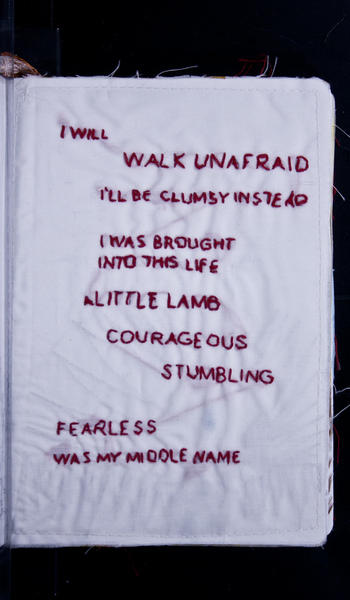 I WILL
WALK UNAFRAID
I'LL BE CLUMSY INSTEAD
I WAS BROUGHT
INTO THIS LIFE
A LITTLE LAMB
COURAGEOUS
STUMBLING
FEARLESS
WAS MY MIDDLE NAME